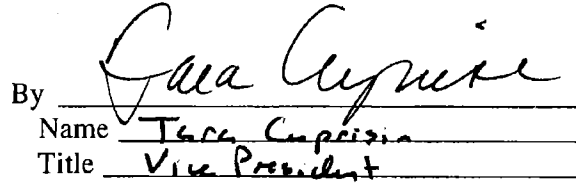 By Tara Cuprisin
Name Tara Cuprisin
Title Vice President